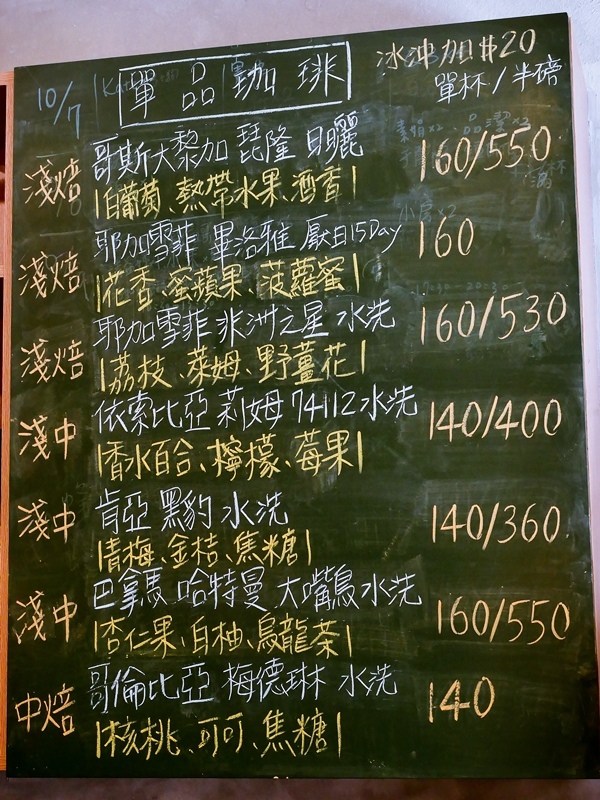 10/7
單品咖啡
冰沖加$20
單杯/半磅
淺焙 哥斯大黎加 琵隆 日曬 160/550
|白葡萄、熱帶水果、酒香|
淺焙 耶加雪菲 畢洛雅 厭日15Day 160
|花香、蜜蘋果、菠蘿蜜|
淺焙 耶加雪菲 非洲之星 水洗 160/530
|荔枝、萊姆、野薑花|
淺中 依索比亞 莉姆 74112 水洗 140/400
|香水百合、檸檬、莓果|
淺中 肯亞 黑豹 水洗 140/360
|青梅、金桔、焦糖|
淺中 巴拿馬 哈特曼 大嘴鳥 水洗 160/550
|杏仁果、白柚、烏龍茶|
中焙 哥倫比亞 梅德琳 水洗 140
|核桃、可可、焦糖|